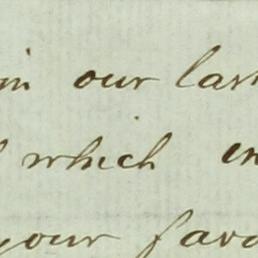 in our las
which en
your favo